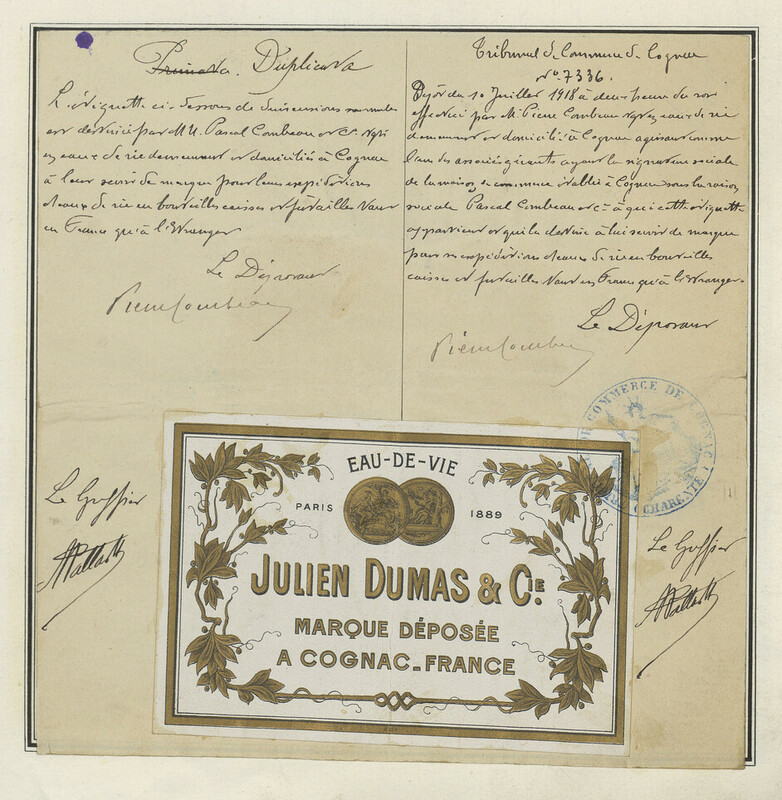 Primata. Duplicata
L'étiquette ci-dessous de dimensions normales
est destinée par MM. Pascal Combeau et Cie Négts
en eaux de vie demeurant et domicilié à Cognac
à leur servir de marque pour leurs expéditions
d'eaux de vie en bouteilles caisses et futailles tant
en France qu'à l'étranger
Le Déposant
Pierre Combeau
Tribunal de Commerce de Cognac
No. 7336.
Dépôt du 10 Juillet 1918 à deux heures du soir
effectué par M. Pierre Combeau Négt en eaux de vie
demeurant et domicilié à Cognac agissant comme
l'un des associés gérants ayant la signature sociale
de la maison de commerce établie à Cognac sous la raison
sociale Pascal Combeau et Cie à qui cette étiquette
appartient et qui la destine à lui servir de marque
pour ses expéditions d'eaux de vie en bouteilles
caisses et futailles tant en France qu'à l'étranger.
Le Déposant
Pierre Combeau
DE COMMERCE DE COGNAC
(CHARENTE)
Le Greffier
Le Greffier
EAU-DE-VIE
PARIS 1889
JULIEN DUMAS & CIE.
MARQUE DÉPOSÉE
A COGNAC-FRANCE